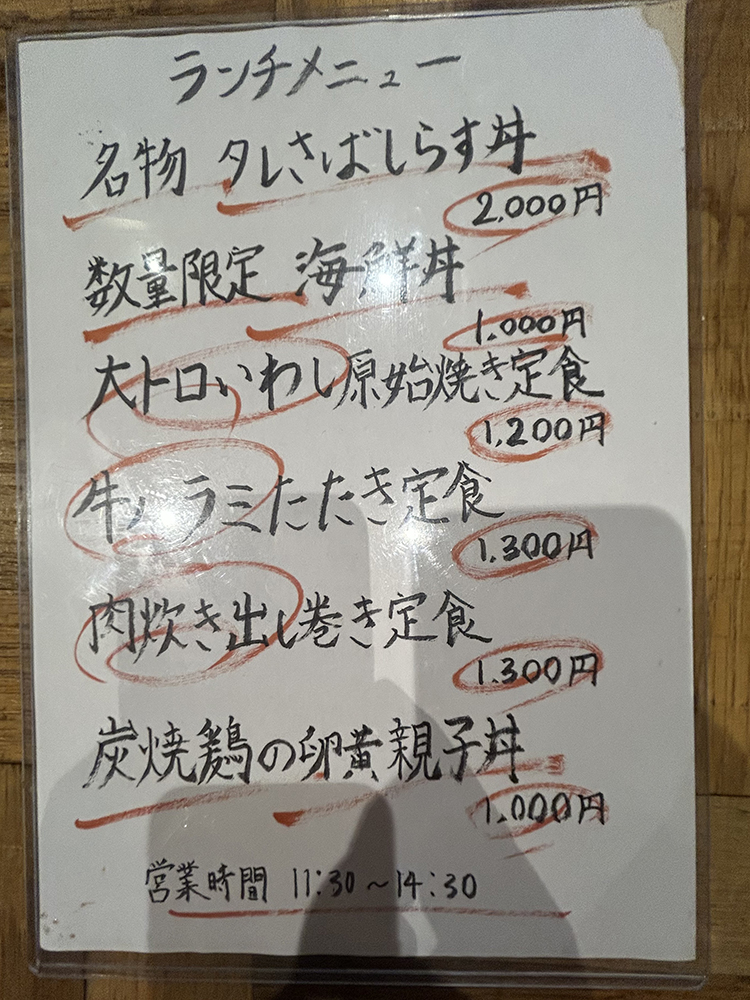 ランチメニュー
名物 タレさばしらす丼
2.000円
数量限定 海鮮丼
1.000円
大トロいわし原始焼き定食
1.200円
牛ハラミたたき定食
1.300円
肉炊き出し巻き定食
1.300円
炭焼鶏の卵黄親子丼
1.000円
営業時間 11:30〜14:30